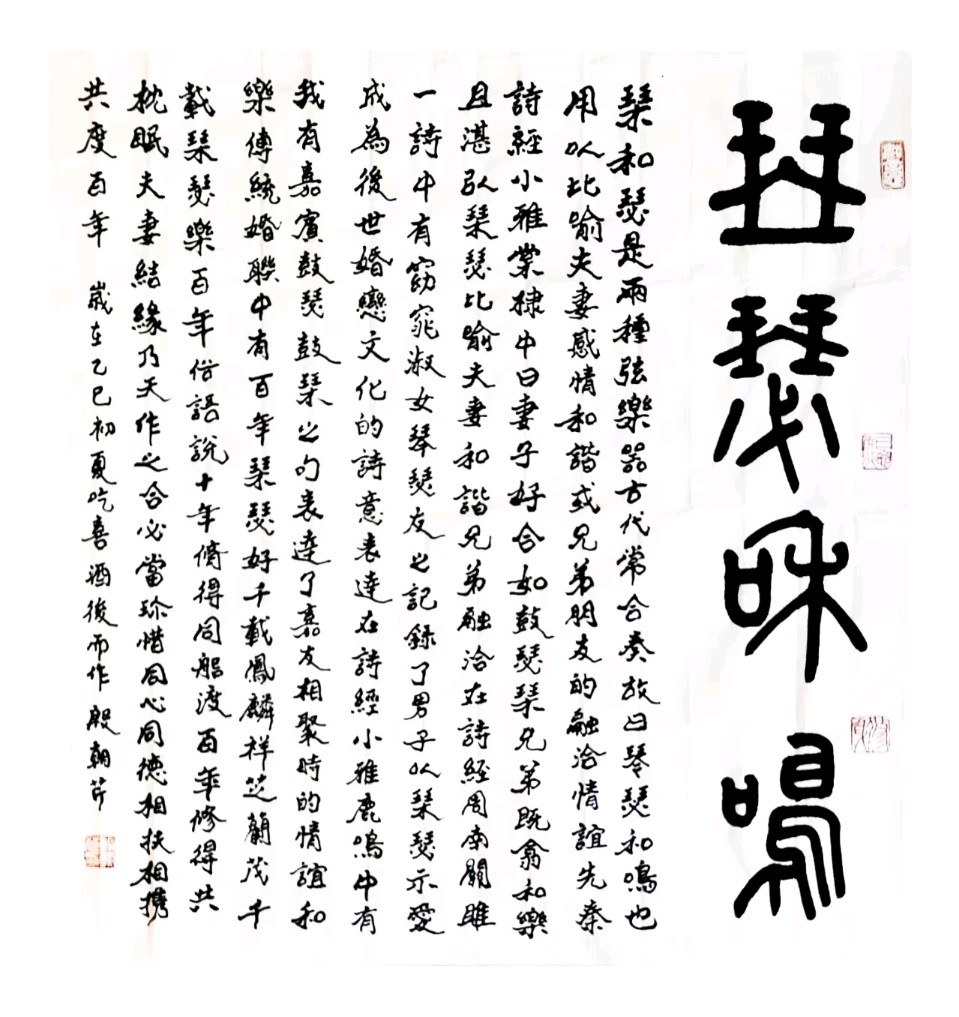 琴瑟和鳴
琹和瑟是兩種弦樂器古代常合奏故曰琴瑟和鳴也
用以比喻夫妻感情和諧或兄弟朋友的融洽情誼先秦
詩經小雅棠棣中曰妻子好合如鼓瑟琹兄弟既翕和樂
且湛以琹瑟比喻夫妻和諧兄弟融洽在詩經周南關雎
一詩中有窈窕淑女琴瑟友之記錄了男子以琹瑟示愛
成為後世婚戀文化的詩意表達在詩經小雅鹿鳴中有
我有嘉賓鼓瑟鼓琹之句表達了嘉友相聚時的情誼和
樂傳統婚聯中有百年琹瑟好千載鳳麟祥芝蘭茂千
載琹瑟樂百年俗語說十年脩得同船渡百年修得共
枕眠夫妻結緣乃天作之合必當珍惜同心同德相扶相攜
共度百年 歲在乙巳初夏吃喜酒後而作 殷朝芹